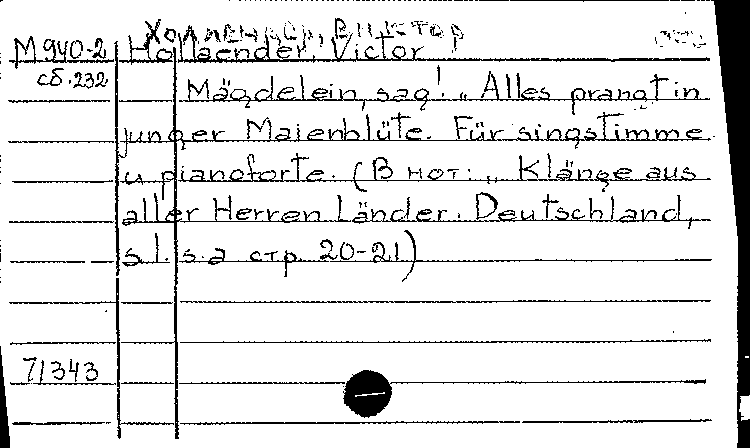 Холлендер, Виктор
М 940-2 Hollaender, Victor
сб. 232 Mägdelein, sag! „Alles prangt in
junger Maienblüte. Für singstimme
u pianoforte. (В нот: „Klänge aus
aller Herren Länder. Deutschland,
s.l. s.a стр. 20-21)
71343